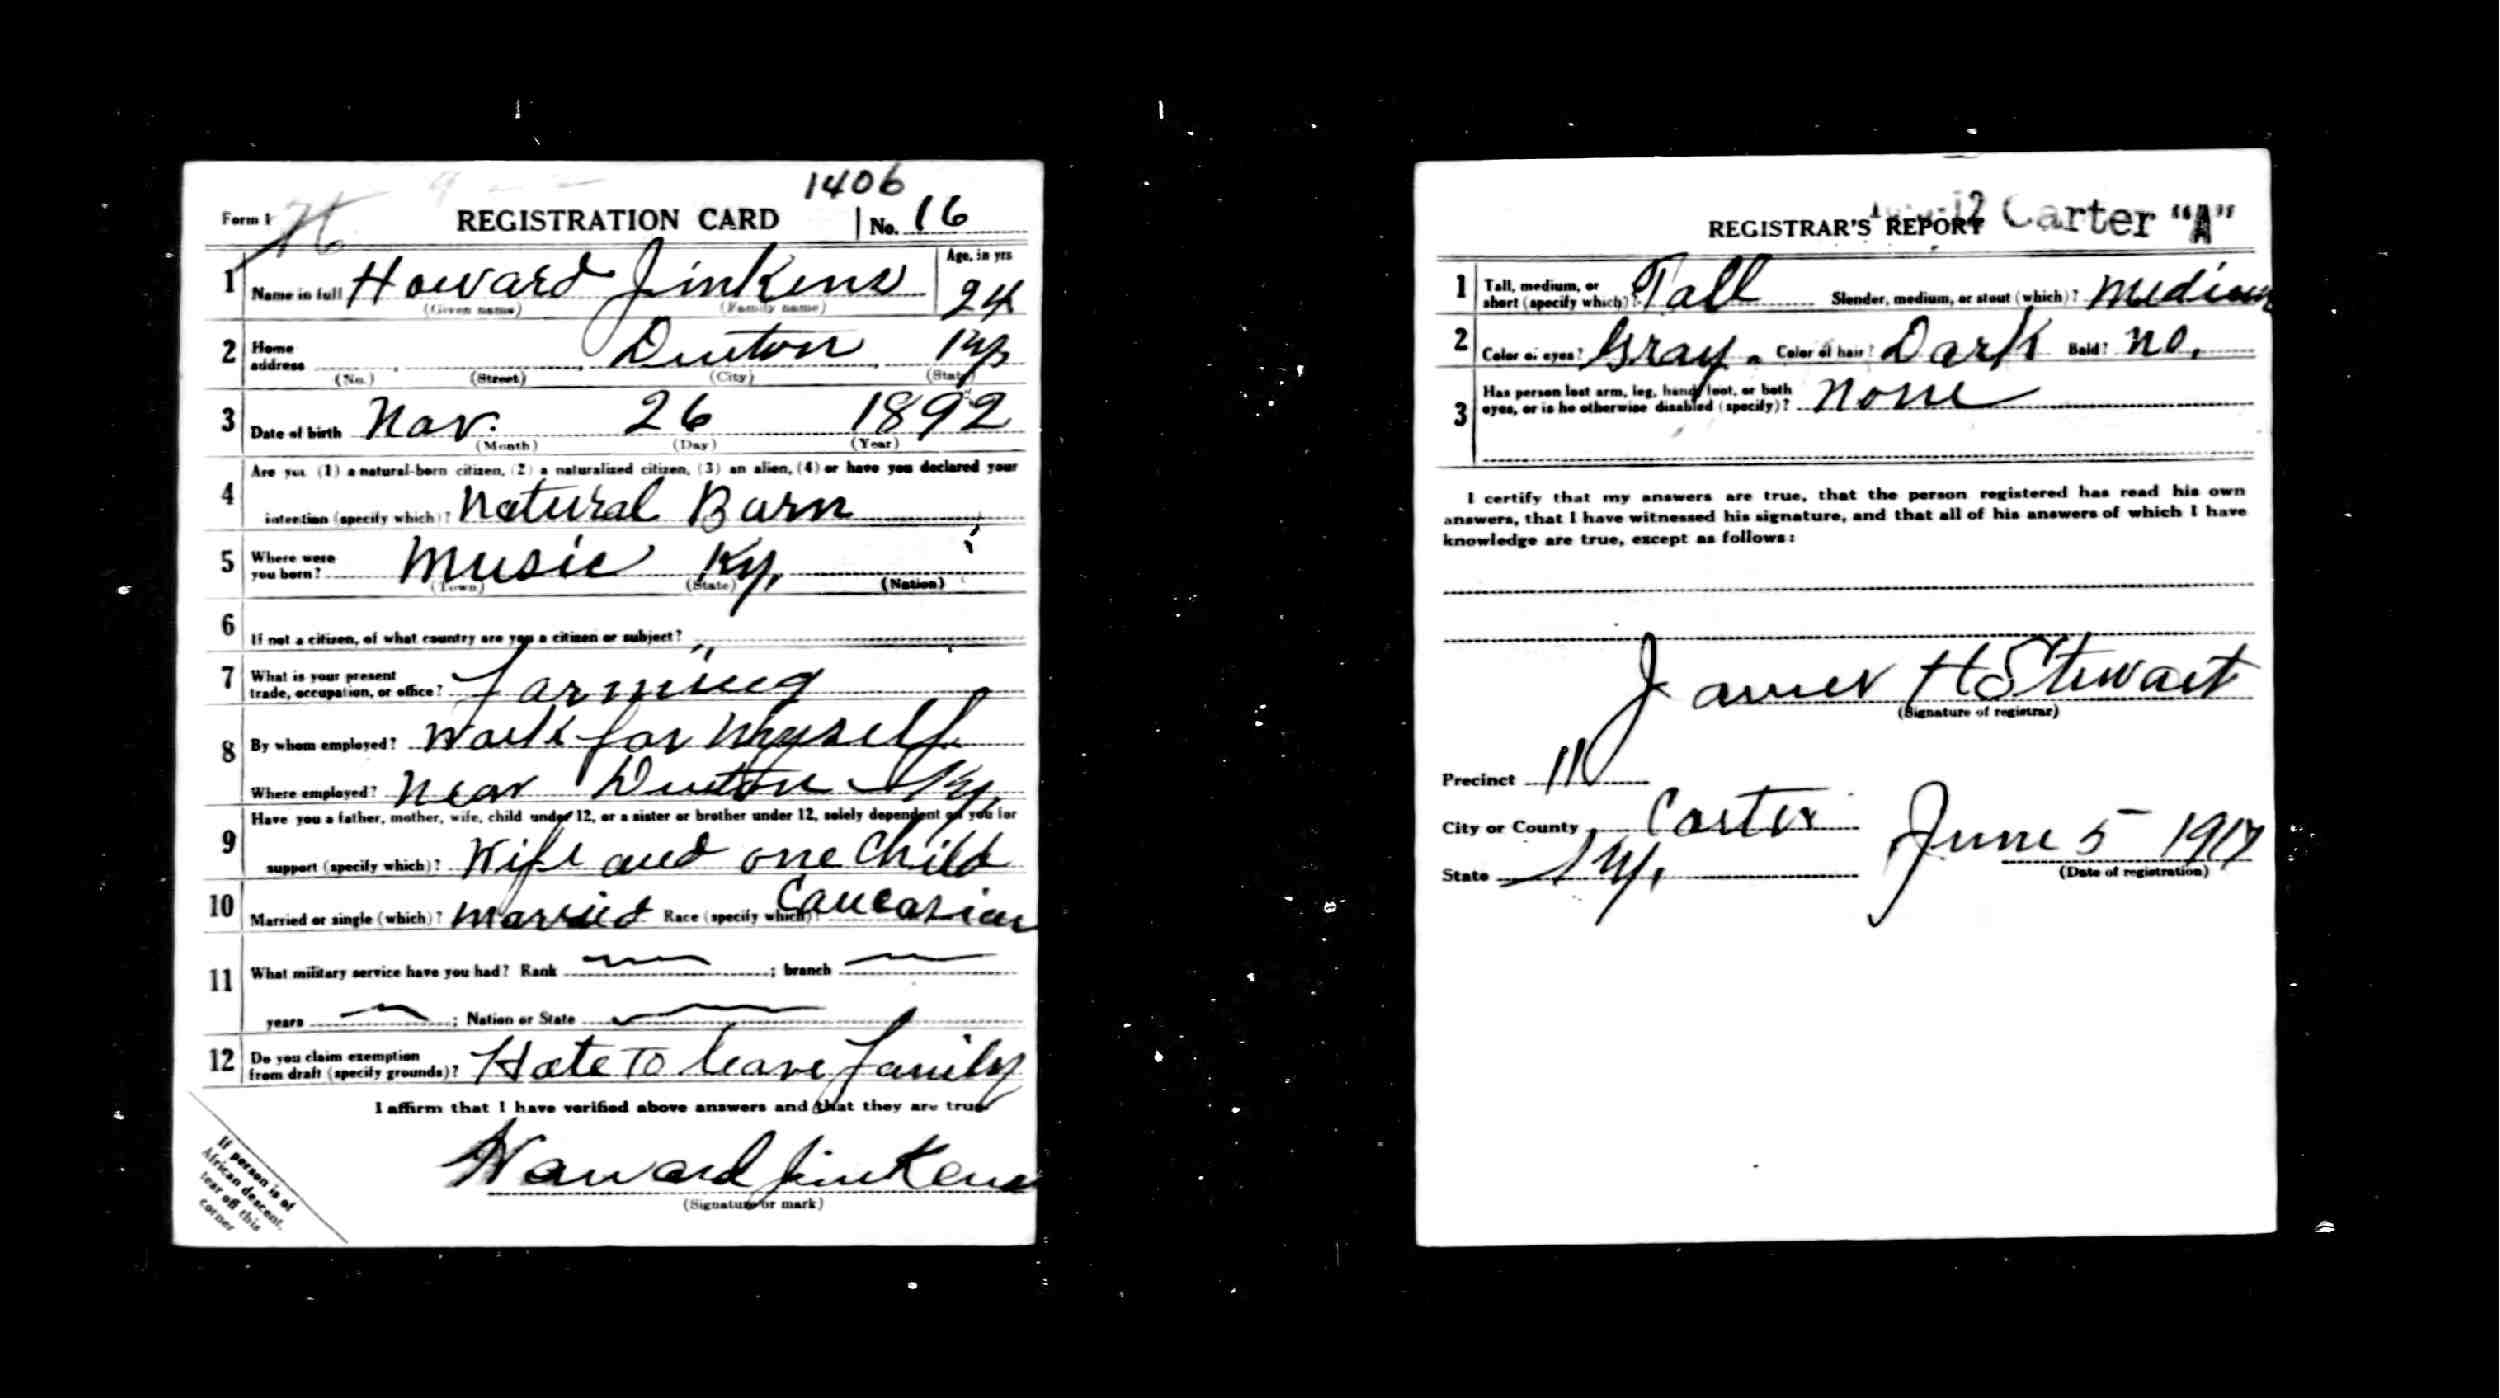 1406
Form 1 REGISTRATION CARD No. 16
1 Name in full Howard Jinkens Age, in yrs 24
(Given name) (Family name)
2 Home address Denton Ky
(No.) (Street) (City) (State)
3 Date of birth Nov. 26 1892
(Month) (Day) (Year)
4 Are you (1) a natural-born citizen, (2) a naturalized citizen, (3) an alien, (4) or have you declared your
intention (specify which)? Natural Born
5 Where were you born? Music Ky,
(Town) (State) (Nation)
6 If not a citizen, of what country are you a citizen or subject?
7 What is your present trade, occupation, or office? Farming
8 By whom employed? Work for Myself
Where employed? Near Denton Ky,
9 Have you a father, mother, wife, child under 12, or a sister or brother under 12, solely dependent on you for
support (specify which)? Wife and one Child
10 Married or single (which)? Married Race (specify which)? Caucasian
11 What military service have you had? Rank ; branch
years ; Nation or State
12 Do you claim exemption from draft (specify grounds)? Hate To leave family
I affirm that I have verified above answers and that they are true.
Howard Jinkens
(Signature or mark)
If person is of
African descent,
tear off this
corner
REGISTRAR'S REPORT Carter "A"
1 Tall, medium, or short (specify which)? Tall Slender, medium, or stout (which)? Medium
2 Color of eyes? Gray. Color of hair? Dark Bald? No.
3 Has person lost arm, leg, hand, foot, or both eyes, or is he otherwise disabled (specify)? None
I certify that my answers are true, that the person registered has read his own
answers, that I have witnessed his signature, and that all of his answers of which I have
knowledge are true, except as follows:
James H Stewart
(Signature of registrar)
Precinct 11
City or County Carter
State Ky.
June 5 1917
(Date of registration)